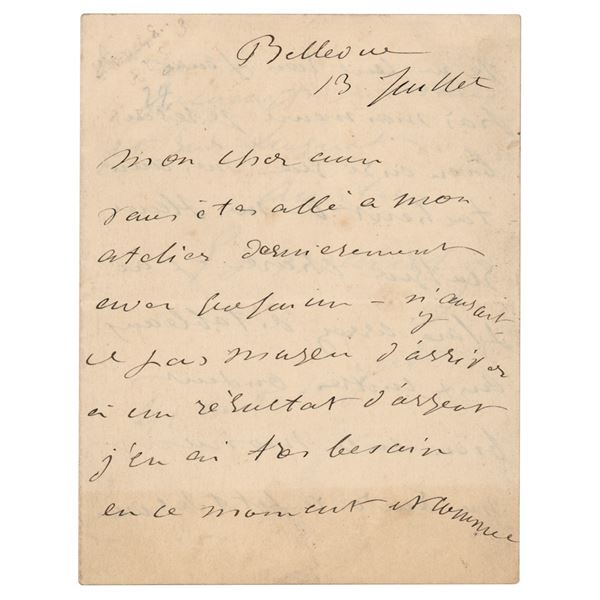 Bellevue
13 Juillet
mon cher ami
vous êtes allé a mon
atelier dernierement
avec – n'y aurait
il pas moyen d'arriver
a un résultat d'argent
j'en ai tres besoin
en ce moment et comme